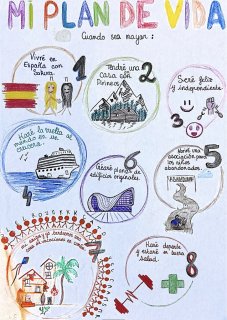 MI PLAN DE VIDA
Cuando sea mayor:
1
Viviré en
España con
2
Tendré una
casa con
3
Seré feliz
y independiente.
4
Haré la vuelta al
mundo en un
crucero.
5
asociación para
los niños
abandonados.
6
planos de
edificios originales.
7
8
Haré deporte
y estaré en buena
salud.